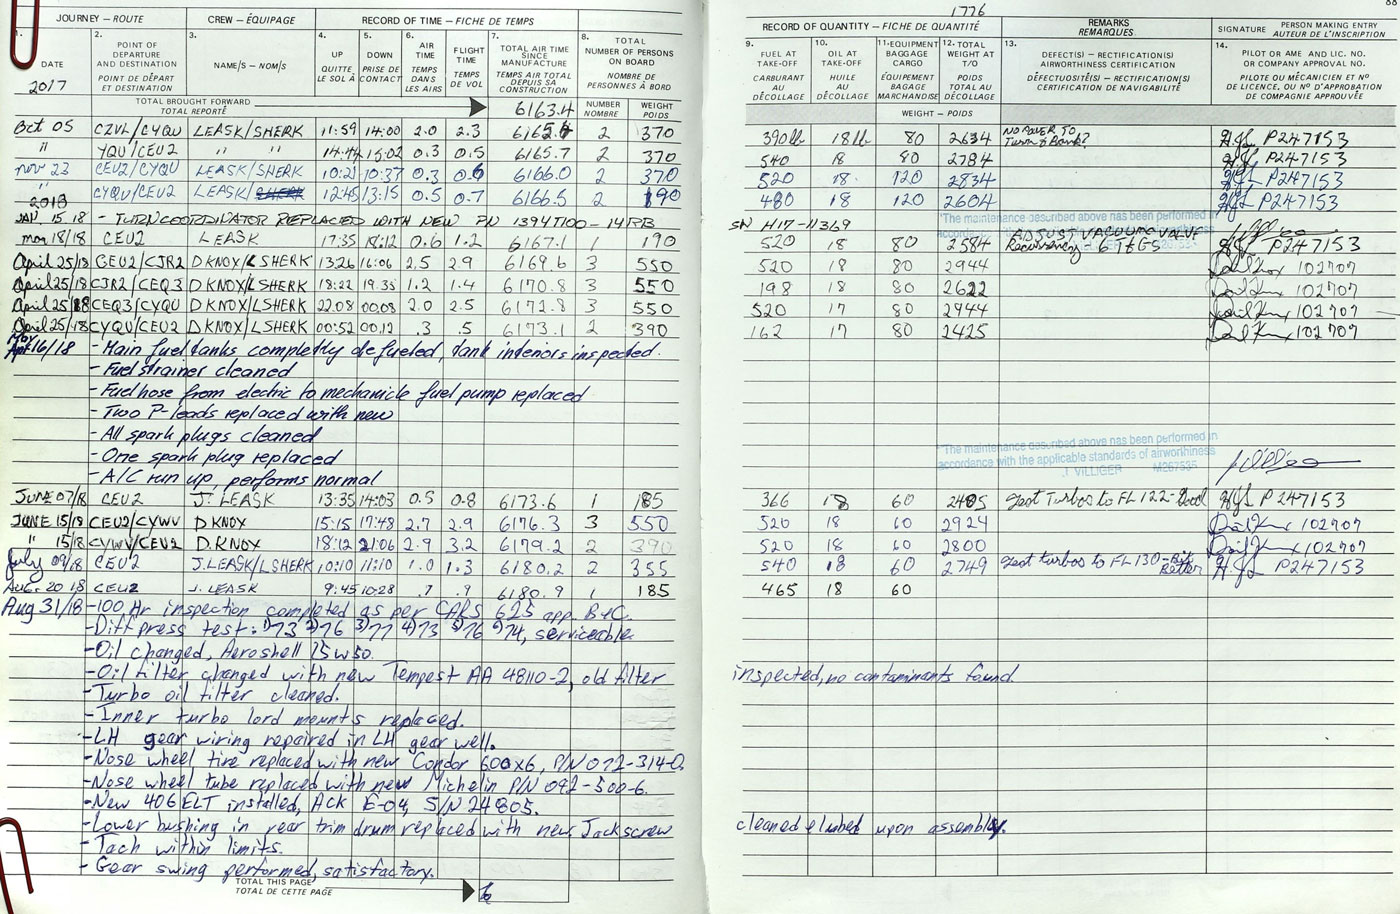 1776
88
JOURNEY – ROUTE CREW – ÉQUIPAGE RECORD OF TIME – FICHE DE TEMPS
1. DATE 2. POINT OF DEPARTURE AND DESTINATION POINT DE DÉPART ET DESTINATION 3. NAME/S – NOM/S 4. UP QUITTE LE SOL À 5. DOWN PRISE DE CONTACT 6. AIR TIME TEMPS DANS LES AIRS FLIGHT TIME TEMPS DE VOL 7. TOTAL AIR TIME SINCE MANUFACTURE TEMPS AIR TOTAL DEPUIS SA CONSTRUCTION 8. TOTAL NUMBER OF PERSONS ON BOARD NOMBRE DE PERSONNES À BORD
2017
TOTAL BROUGHT FORWARD TOTAL REPORTÉ 6163.4 NUMBER NOMBRE WEIGHT POIDS
Oct 05 CZVL/CYQU LEASK/SHERK 11:59 14:00 2.0 2.3 6165.4 2 370
" YQU/CEU2 " " 14:44 15:02 0.3 0.5 6165.7 2 370
nov 23 CEU2/CYQU LEASK/SHERK 10:21 10:37 0.3 0.6 6166.0 2 370
" CYQU/CEU2 LEASK/SHERK 12:45 13:15 0.5 0.7 6166.5 2 190
2018
JAN 15 18 - TURN COORDINATOR REPLACED WITH NEW PN 1394T100-14RB
mar 18/18 CEU2 LEASK 17:35 18:12 0.6 1.2 6167.1 1 190
April 25/18 CEU2/CJR2 D KNOX/L SHERK 13:26 16:06 2.5 2.9 6169.6 3 550
April 25/18 CJR2/CEQ3 D KNOX/L SHERK 18:22 19:35 1.2 1.4 6170.8 3 550
April 25/18 CEQ3/CYQU D KNOX/L SHERK 22:08 00:08 2.0 2.5 6172.8 3 550
April 25/18 CYQU/CEU2 D KNOX/L SHERK 00:52 00:12 .3 .5 6173.1 2 390
May 16/18 - Main fuel tanks completly defueled, tank interiors inspected.
- Fuel strainer cleaned
- Fuel hose from electric to mechanicle fuel pump replaced
- Two P-leads replaced with new
- All spark plugs cleaned
- One spark plug replaced
- A/C run up, performs normal
JUNE 07/18 CEU2 J. LEASK 13:35 14:03 0.5 0.8 6173.6 1 185
JUNE 15/18 CEU2/CYWV D KNOX 15:15 17:48 2.7 2.9 6176.3 3 550
" 15/18 CYWV/CEU2 D. KNOX 18:12 21:06 2.9 3.2 6179.2 2 390
July 09/18 CEU2 J. LEASK/L SHERK 10:10 11:10 1.0 1.3 6180.2 2 355
Aug. 20 18 CEU2 J. LEASK 9:45 10:28 .7 .9 6180.9 1 185
Aug 31/18 - 100 Hr inspection completed as per CARS 625 app. B+C.
- Diff press test: 1)73 2)76 3)77 4)73 5)76 6)74, serviceable
- Oil changed, Aeroshell 15w50.
- Oil filter changed with new Tempest AA 48110-2, old filter
- Turbo oil filter cleaned.
- Inner turbo lord mounts replaced.
- LH gear wiring repaired in LH gear well.
- Nose wheel tire replaced with new Condor 6.00x6, P/N 072-314-0.
- Nose wheel tube replaced with new Michelin P/N 092-500-6.
- New 406 ELT installed, Ack E-04, S/N 24805.
- Lower bushing in rear trim drum replaced with new Jackscrew
- Tach within limits.
- Gear swing performed, satisfactory.
TOTAL THIS PAGE
TOTAL DE CETTE PAGE
RECORD OF QUANTITY – FICHE DE QUANTITÉ REMARKS REMARQUES SIGNATURE PERSON MAKING ENTRY AUTEUR DE L'INSCRIPTION
9. FUEL AT TAKE-OFF CARBURANT AU DÉCOLLAGE 10. OIL AT TAKE-OFF HUILE AU DÉCOLLAGE 11. EQUIPMENT BAGGAGE CARGO ÉQUIPEMENT BAGAGE MARCHANDISE 12. TOTAL WEIGHT AT T/O POIDS TOTAL AU DÉCOLLAGE 13. DEFECT(S) – RECTIFICATION(S) AIRWORTHINESS CERTIFICATION DÉFECTUOSITÉ(S) – RECTIFICATION(S) CERTIFICATION DE NAVIGABILITÉ 14. PILOT OR AME AND LIC. NO. OR COMPANY APPROVAL NO. PILOTE OU MÉCANICIEN ET Nº DE LICENCE, OU Nº D'APPROBATION DE COMPAGNIE APPROUVÉE
WEIGHT – POIDS
390lb 18lb 80 2634 NO POWER TO Turn & Bank? P247153
540 18 80 2784 P247153
520 18 120 2834 P247153
480 18 120 2604 P247153
SN H17-11369 "The maintenance described above has been performed in
520 18 80 2584 ADJUST VACUUM VALVE Recurrency 6 T&GS P247153
520 18 80 2944 102707
198 18 80 2622 102707
520 17 80 2944 102707
162 17 80 2425 102707
"The maintenance described above has been performed in
accordance with the applicable standards of airworthiness
J. VILLIGER M267535
366 18 60 2485 Test Turbos to FL 122-Good P247153
520 18 60 2924 102707
520 18 60 2800 102707
540 18 60 2749 Test turbos to FL 130-Bit Better P247153
465 18 60
inspected, no contaminants found.
cleaned & lubed upon assembly.